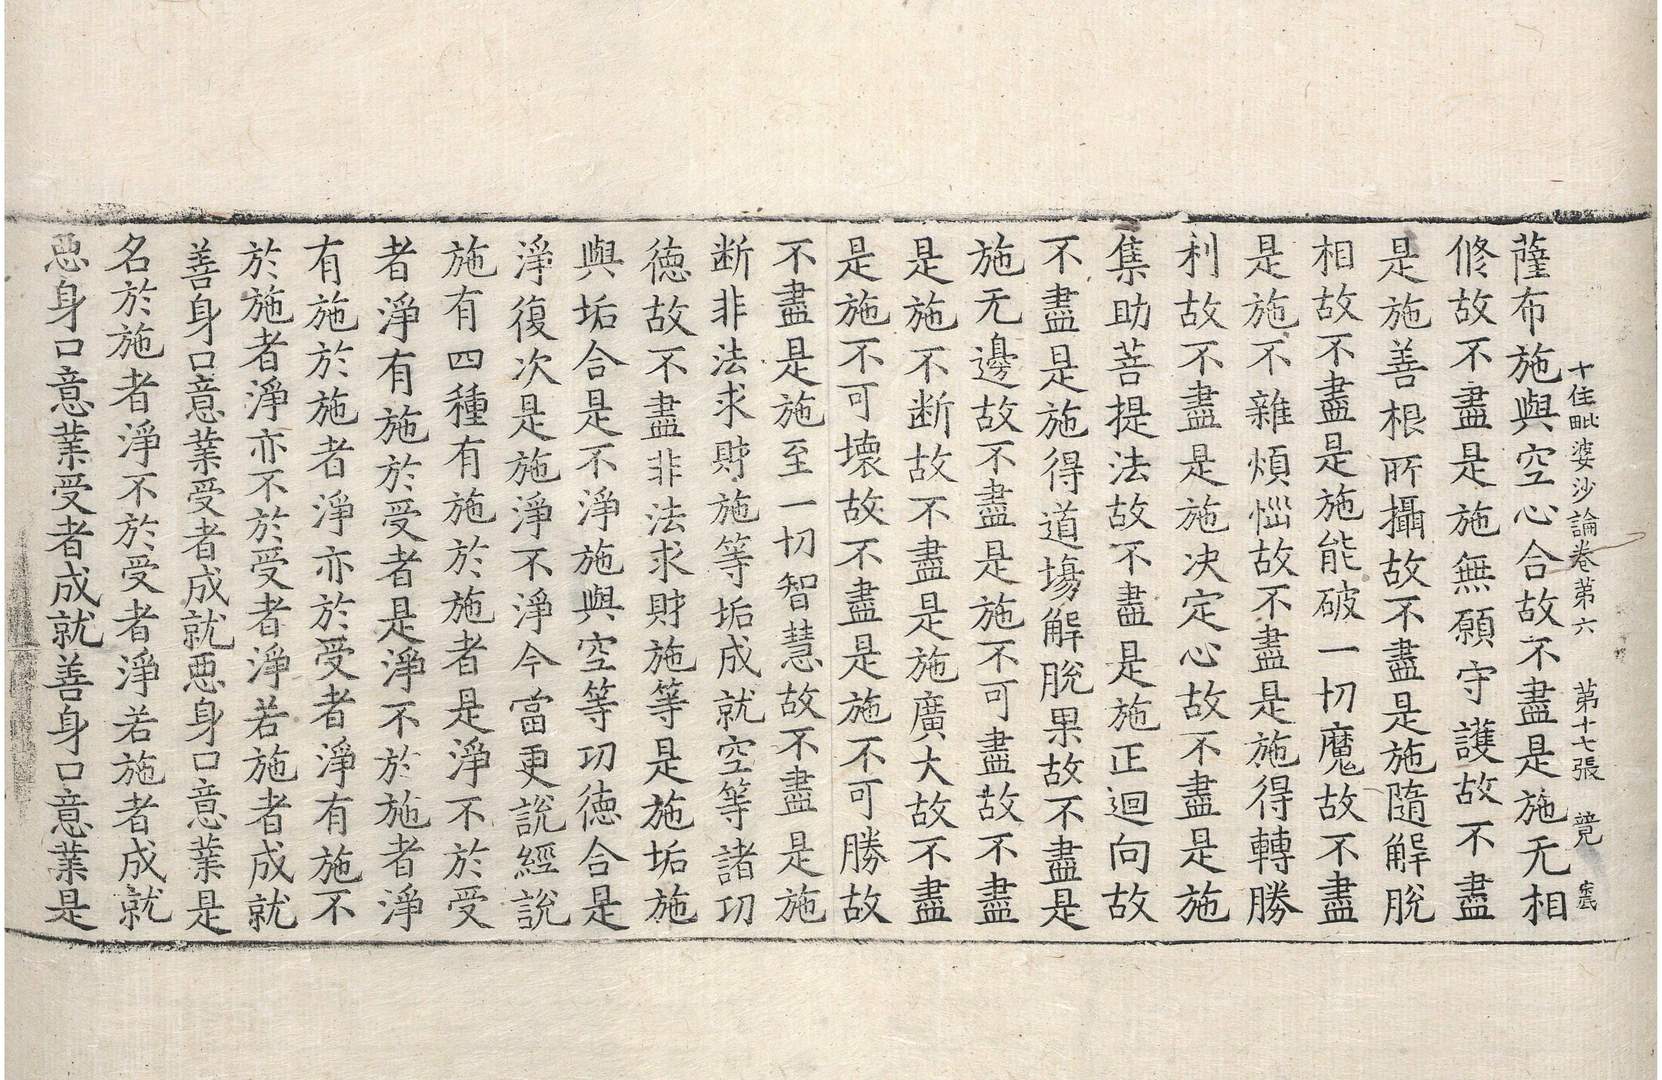 十住毗婆沙論卷第六　第十七張　竟
薩布施與空心合故不盡是施无相
修故不盡是施無願守護故不盡
是施善根所攝故不盡是施隨解脫
相故不盡是施能破一切魔故不盡
是施不雜煩惱故不盡是施得轉勝
利故不盡是施决定心故不盡是施
集助菩提法故不盡是施正迴向故
不盡是施得道場解脫果故不盡是
施无邊故不盡是施不可盡故不盡
是施不斷故不盡是施廣大故不盡
是施不可壞故不盡是施不可勝故
不盡是施至一切智慧故不盡是施
断非法求財施等垢成就空等諸功
德故不盡非法求財施等是施垢施
與垢合是不淨施與空等功德合是
淨復次是施淨不淨今當更說經說
施有四種有施於施者是淨不於受
者淨有施於受者是淨不於施者淨
有施於施者淨亦於受者淨有施不
於施者淨亦不於受者淨若施者成就
善身口意業受者成就惡身口意業是
名於施者淨不於受者淨若施者成就
惡身口意業受者成就善身口意業是